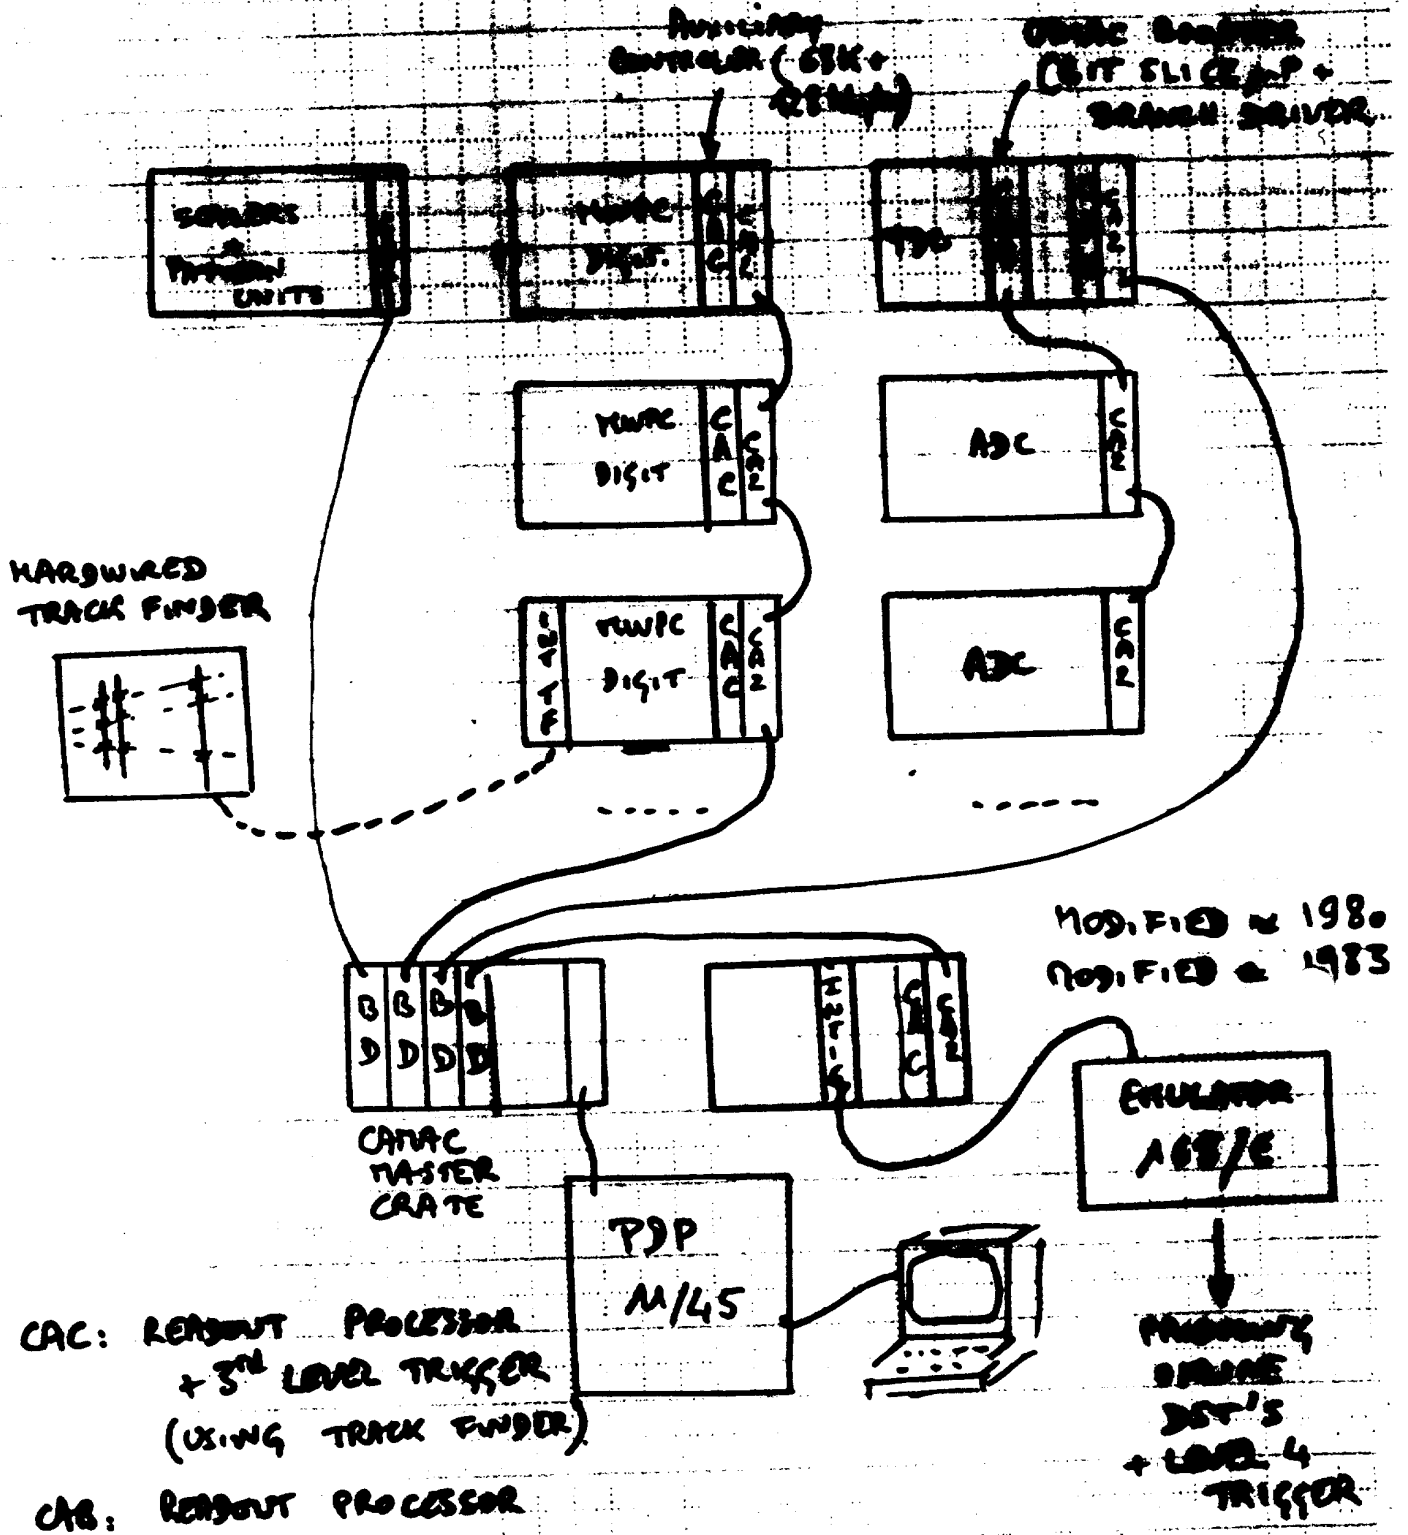 AUXILIARY
CONTROLLER (68K +
CAMAC BOOSTER
(BIT SLICE μP +
BRANCH DRIVER
SCALERS
+
PATTERN
UNITS
MWPC
DIGIT.
CAC
CA2
TDC
CA2
MWPC
DIGIT
CAC
CA2
ADC
CA2
HARDWIRED
TRACK FINDER
INT TF
MWPC
DIGIT
CAC
CA2
ADC
CA2
MODIFIED ≈ 1980
MODIFIED ≈ 1983
BD
BD
BD
BD
CAC
CA2
CAMAC
MASTER
CRATE
EMULATOR
168/E
PDP
11/45
CAC: READOUT PROCESSOR
+ 3RD LEVEL TRIGGER
(USING TRACK FINDER)
CAB: READOUT PROCESSOR
DST'S
+ LEVEL 4
TRIGGER